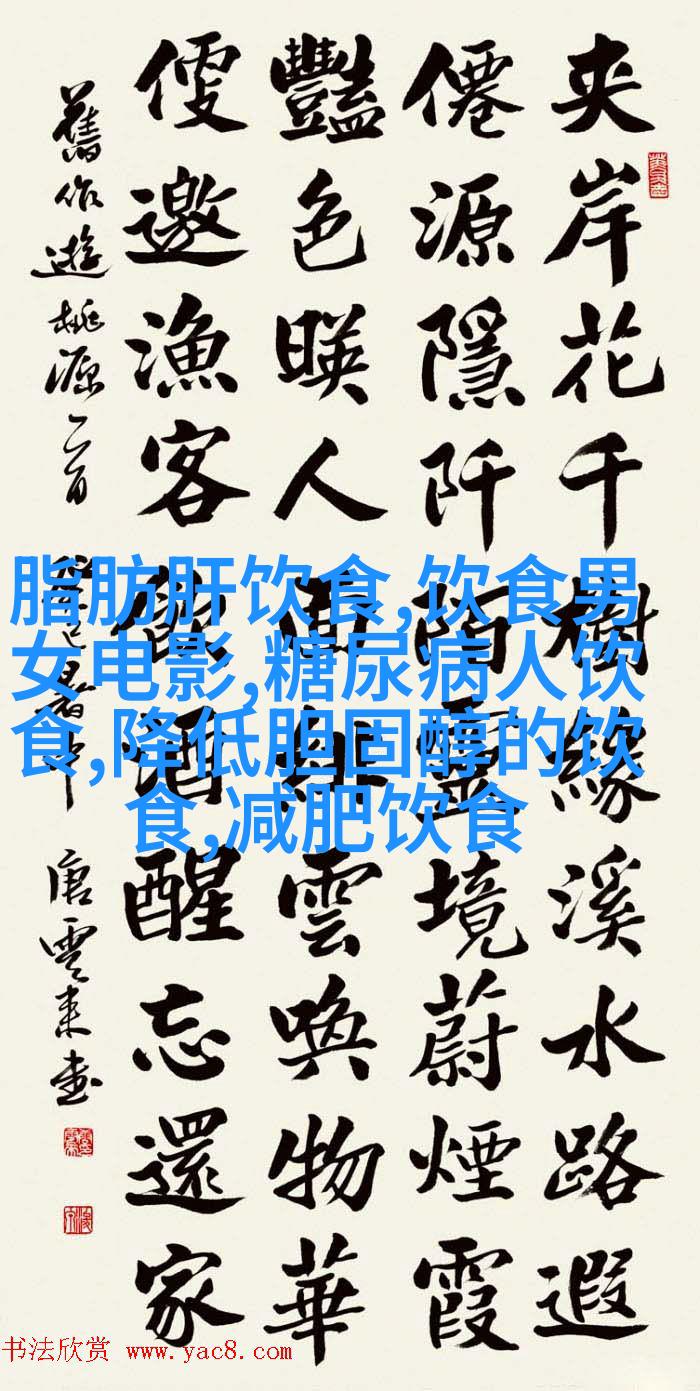 夾岸花千樹緣溪水路遐
僊源隱阡陌靈境蔚煙霞
豔色暎人面雲喚物華
便邀漁客酒醒忘還家
舊作遊桃源二首 暑中 唐雲來書
脂肪肝饮食,饮食男
女电影,糖尿病人饮
食,降低胆固醇的饮
食,减肥饮食
书法欣赏 www.yac8.com